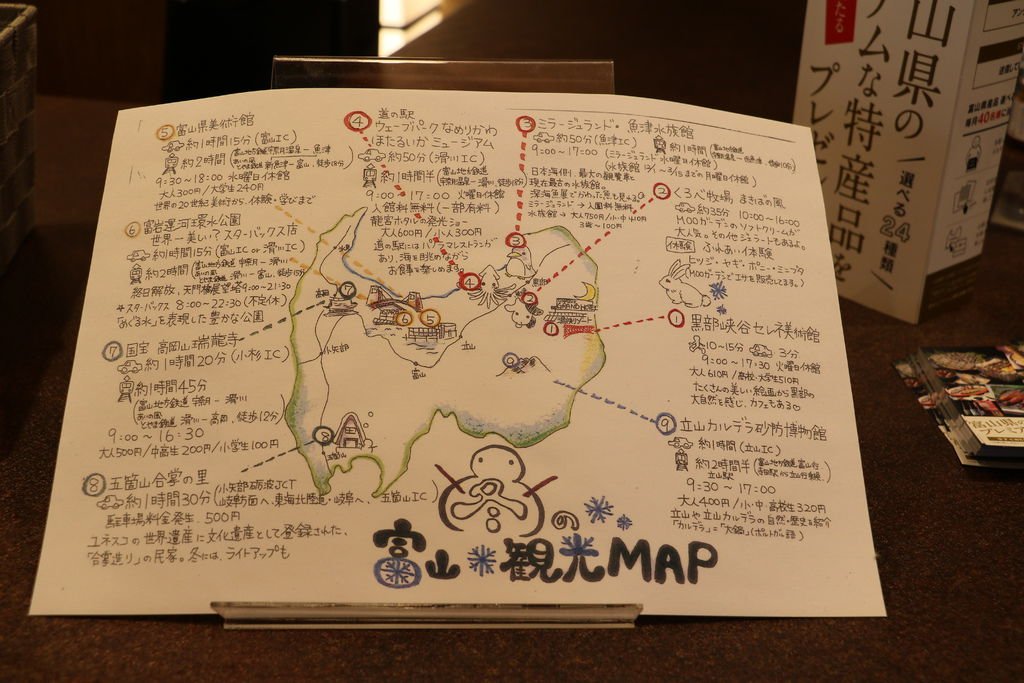 ⑤ 富山県美術館
約1時間15分(富山IC)
約2時間
9:30〜18:00 水曜日休館
大人300円/大学生240円
世界の20世紀美術から、体験・学びまで
⑥ 富岩運河環水公園
世界一美しい?スターバックス店
約1時間15分(富山IC or 滑川IC)
約2時間
終日開放、天門橋展望塔9:00〜21:30
*スターバックス 8:00〜22:30(不定休)
「めぐる水」を表現した豊かな公園
⑦ 国宝 高岡山瑞龍寺
約1時間20分(小杉IC)
約1時間45分
9:00〜16:30
大人500円/中高生200円/小学生100円
⑧ 五箇山合掌の里
約1時間30分(小矢部砺波JCT
岐阜方面へ、東海北陸道 五箇山IC)
駐車場料金発生.500円
ユネスコの世界遺産に文化遺産として登録された、
「合掌造り」の民家。冬には、ライトアップも
④ 道の駅
ウェーブパークなめりかわ
ほたるいかミュージアム
約50分(滑川IC)
約1時間半
9:00〜17:00 火曜日休館
入館料無料(一部有料)
龍宮ホタルの発光ショー
大人600円/小人300円
道の駅にはパノラマレストランが
あり、海を眺めながら
お食事を楽しめます。
③ ミラージュランド・魚津水族館
約50分(魚津IC)
9:00〜17:00 (ミラージュランド 水曜日休館)
日本海側 最大の観覧車と
現存最古の水族館。
ミラージュランド→入園料無料
水族館→大人750円/小・中410円
3歳〜100円
② くろべ牧場 まきばの風
約35分 10:00〜16:00
MOOガーデンのソフトクリームが
大人気。その他ジェラートもあるよ。
体験 ふれあい体験
ヒツジ・ヤギ・ポニー・ミニブタ
(MOOガーデンでエサを販売してます。)
① 黒部峡谷セレネ美術館
10〜15分 3分
9:00〜17:30 火曜日休館
大人610円/高校・大学生510円
たくさんの美しい絵画から黒部の
大自然を感じ、カフェもある♡
⑨ 立山カルデラ砂防博物館
約1時間(立山IC)
約2時間半
9:30〜17:00
大人400円/小・中・高校生320円
立山や立山カルデラの自然・歴史を紹介
「カルデラ」=「大鍋」(ポルトガル語)
氷見
高岡
小矢部
富山
立山
黒部
五箇山
GRAND HOTEL
冬の
富山観光MAP
山県の
プレミアムな特産品を
選べる24種類